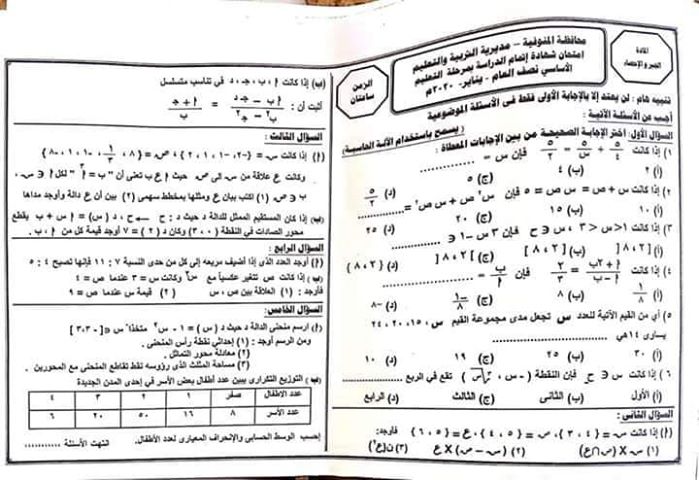 محافظة المنوفية – مديرية التربية والتعليم
امتحان شهادة إتمام الدراسة بمرحلة التعليم
الأساسي نصف العام - يناير- ٢٠٢٠م
المادة
الجبر والإحصاء
الزمن
ساعتان
تنبيه هام : لن يعتد إلا بالإجابة الأولى فقط فى الأسئلة الموضوعية
أجب عن الأسئلة الآتية :
( يسمح باستخدام الآلة الحاسبة )
السؤال الأول: اختر الإجابة الصحيحة من بين الإجابات المعطاة :
(أ) ٢ (ب) ٤ (ج) ٥ (د) ٥/٢
٢) إذا كانت س + ص = س ص = ٥ فإن س٢ ص + س ص٢ = ............
(أ) ١٠ (ب) ١٥ (ج) ٢٠ (د) ٢٥
٣) إذا كانت ١ < س < ٣ ، س ∈ ح فإن ٣ س - ١ ∈
٤) إذا كانت (أ + ٢ب)/(أ - ب) = ٢/٣ فإن أ/ب = ............
(أ) ١/٨ (ب) ٨ (ج) -١/٨ (د) -٨
٥) أي من القيم الآتية للعدد س تجعل مدى مجموعة القيم س ، ١٥ ، ٢٠ ، ٢٤
يساوى ١٤ هي
(أ) ٣٠ (ب) ٢٥ (ج) ١٩ (د) ١٠
تقع في الربع
(أ) الأول (ب) الثانى (ج) الثالث (د) الرابع
السؤال الثانى :
(أ) إذا كانت س = { ٣ ، ٤ } ، ص = { ٤ ، ٥ } ، ع = { ٦ ، ٥ } فأوجد:
(١) س X (ص ∩ ع) (٢) (س - ص) X ع (٣) ن(ع٢)
(ب) إذا كانت أ ، ب ، جـ ، د في تناسب متسلسل
أثبت أن : (أ ب - جـ د)/(ب٢ - جـ٢) = (أ + جـ)/ب
السؤال الثالث :
وكانت ع علاقة من س الى ص حيث أ ع ب تعنى أن
ب ∈ ص (١) اكتب بيان ع ومثلها بمخطط سهمى (٢) بين أن ع دالة وأوجد مداها
(ب) إذا كان المستقيم الممثل للدالة د حيث د : ح ← ح ، د ( س ) = أ س + ب يقطع
محور الصادات في النقطة ( ٠ ، ٣ ) وكان د ( ٢ ) = ٧ أوجد قيمة كل من أ ، ب .
السؤال الرابع :
(أ) أوجد العدد الذى إذا أضيف مربعه إلى كل من حدى النسبة ٧ : ١١ فإنها تصبح ٤ : ٥
(ب) إذا كانت ص تتغير عكسياً مع وكانت س = ٣ عندما ص = ٤
فأوجد : (١) العلاقة بين ص ، س (٢) قيمة س عندما ص = ٩
السؤال الخامس:
(أ) ارسم منحنى الدالة د حيث د ( س ) = ١ - س٢ متخذاً س ∈ [ -٣ ، ٣ ]
ومن الرسم أوجد : (١) إحداثي نقطة رأس المنحنى .
(٢) معادلة محور التماثل .
(٣) مساحة المثلث الذى رؤوسه نقط تقاطع المنحنى مع المحورين .
(ب) التوزيع التكرارى يبين عدد أطفال بعض الأسر في إحدى المدن الجديدة
عدد الاطفال صفر ١ ٢ ٣ ٤
عدد الأسر ٨ ١٦ ٥٠ ٢٠ ٦
إحسب الوسط الحسابى والإنحراف المعيارى لعدد الأطفال. انتهت الأسئلة ............